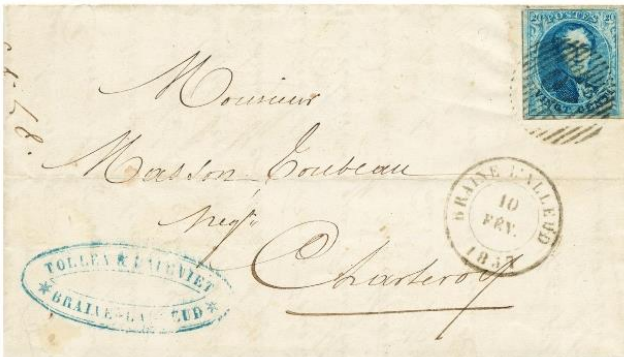 20 POSTES 20
VINGT CENT
Monsieur
Masson Toubeau
Negt
Charleroy
BRAINE L'ALLEUD
10
FÉV.
1857
TOLLEY &
BRAINE-LALLEUD